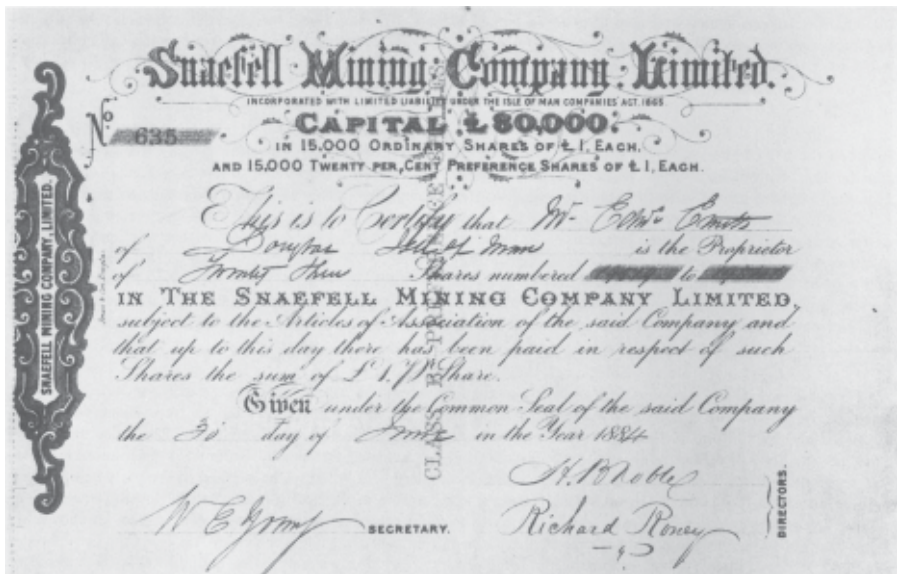 Snaefell Mining Company Limited.
INCORPORATED WITH LIMITED LIABILITY UNDER THE ISLE OF MAN COMPANIES ACT. 1865
CAPITAL £30,000.
No 635
IN 15,000 ORDINARY SHARES OF £1, EACH.
AND 15,000 TWENTY PER, CENT PREFERENCE SHARES OF £1, EACH.
This is to Certify that Mr
of Douglas Isle of Man is the Proprietor
of Twenty Three Shares numbered to
IN THE SNAEFELL MINING COMPANY LIMITED,
subject to the Articles of Association of the said Company and
that up to this day there has been paid in respect of such
Shares the sum of £1. Share.
Given under the Common Seal of the said Company
the 30 day of June in the Year 1884
H. B. Noble
W E SECRETARY.
Richard Roney
DIRECTORS.
SNAEFELL MINING COMPANY, LIMITED.
CLASS B PREFERENCE